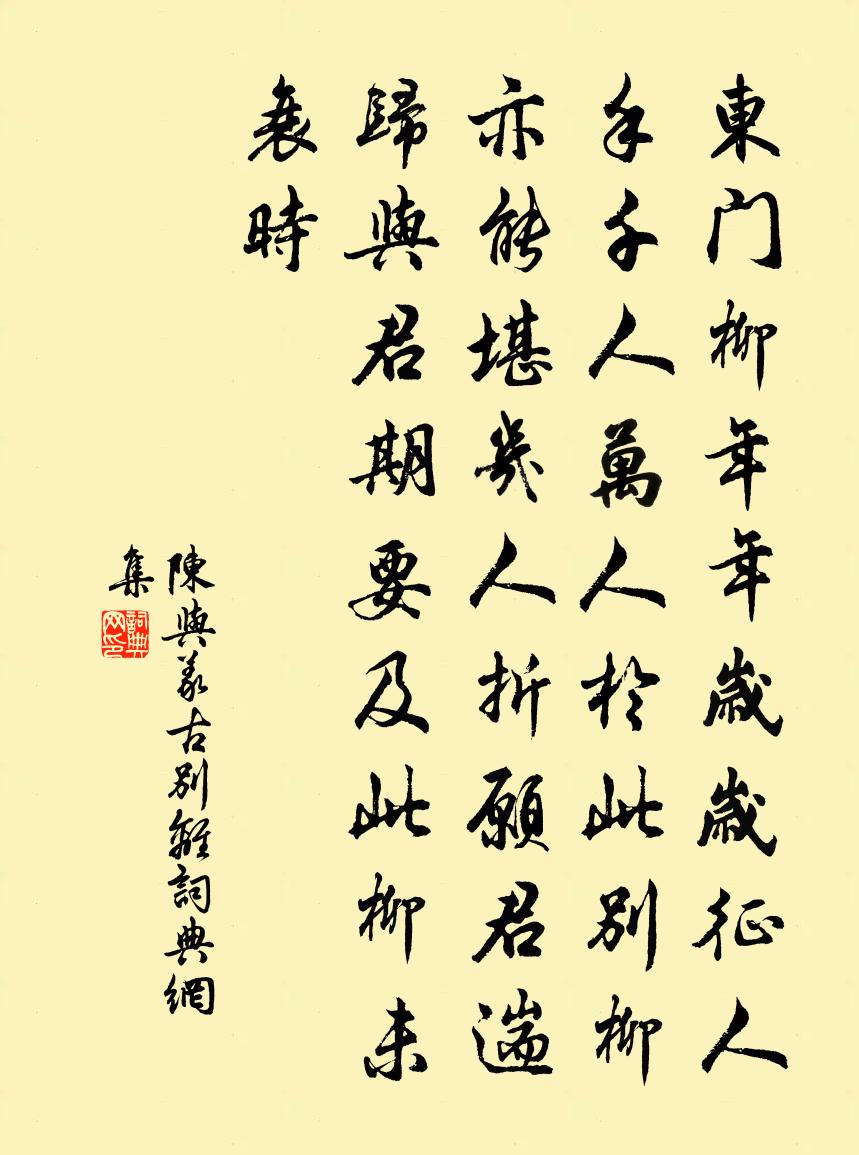 東門柳年年歲歲征人
手千人萬人於此別柳
亦能堪幾人折願君遄
歸與君期要及此柳未
衰時
陳與義古別離詞典網
集
詞典
网印